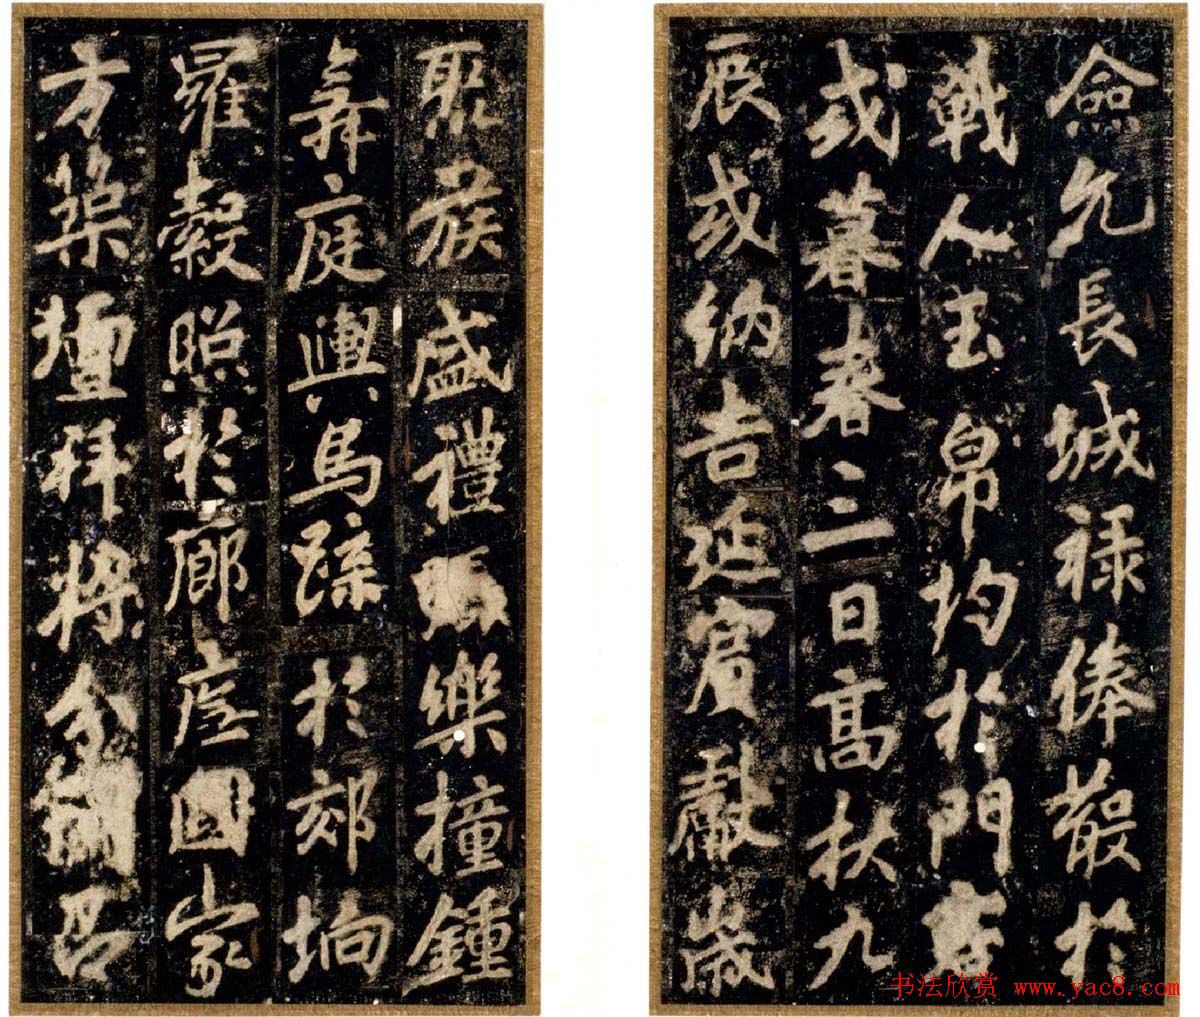 僉允長城祿俸散於
戰人玉帛均於門客
或暮春三日高秋九
辰或納吉延賓獻歲
聚族盛禮樂撞鍾
舞庭輿馬於郊坰
羅縠照於廊廡國家
方築壇拜將分
书法欣赏 www.yac8.com